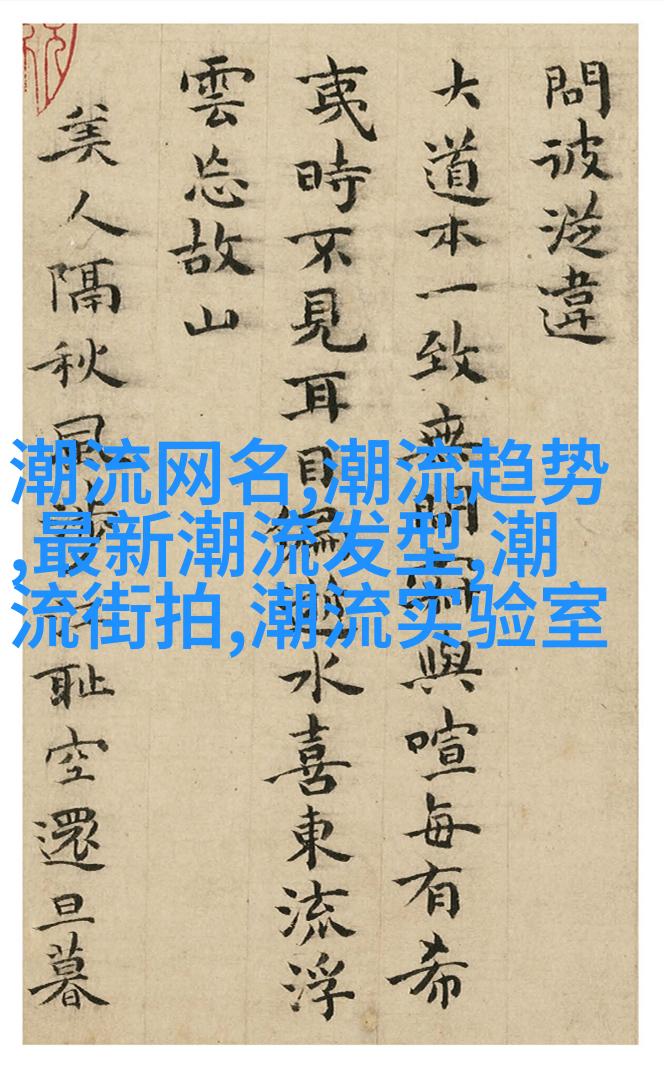 問彼從違
大道本一致無間與喧每有希
夷時不見耳目水喜東流浮
雲忘故山
美人隔秋風耻空還旦暮
潮流网名,潮流趋势
,最新潮流发型,潮
流街拍,潮流实验室